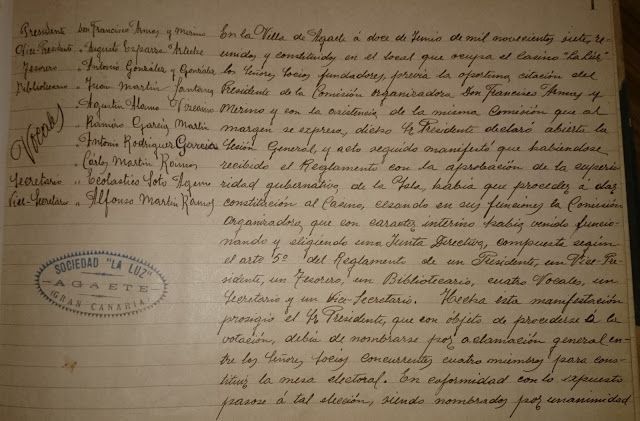 Presidente Don Francisco Armas y Merino
Vice-Presidente " Augusto Esparza Arteche
Tesorero " Antonio González y González
Bibliotecario " Juan Martín Santana
Vocales
" Agustín Álamo Vizcaíno
" Ramón García Martín
" Antonio Rodríguez García
" Carlos Martín Ramos
Secretario " Ecolástico Soto
Vice-Secretario " Alfonso Martín Ramos
SOCIEDAD "LA LUZ"
AGAETE
GRAN CANARIA
En la Villa de Agaete á doce de Junio de mil novecientos siete, re-
unidos y constituidos en el local que ocupa el Casino "La Luz"
los Señores Socios fundadores, previa la oportuna citación del
Presidente de la Comisión organizadora Don Francisco Armas y
Merino y con la asistencia de la misma Comisión que al
margen se expresa, dicho Sr Presidente declaró abierta la
Sesión General, y acto seguido manifestó que habiéndose
recibido el Reglamento con la aprobación de la superio-
ridad gubernativa de la Isla, había que proceder á dar
constitución al Casino, cesando en sus funciones la Comisión
Organizadora que con caracter interino había venido funcio-
nando y eligiendo una Junta Directiva, compuesta según
el arto 5º del Reglamento de un Presidente, un Vice-Pre-
sidente, un Tesorero, un Bibliotecario, cuatro Vocales, un
Secretario y un Vice-Secretario. Hecha esta manifestación
prosigió el Sr Presidente, que con objeto de procederse á la
votación, debía de nombrarse por aclamación general en-
tre los Señores socios concurrentes cuatro miembros para cons-
tituir la mesa electoral. En coformidad con lo expuesto
pasose á tal elección, siendo nombrados por unanimidad